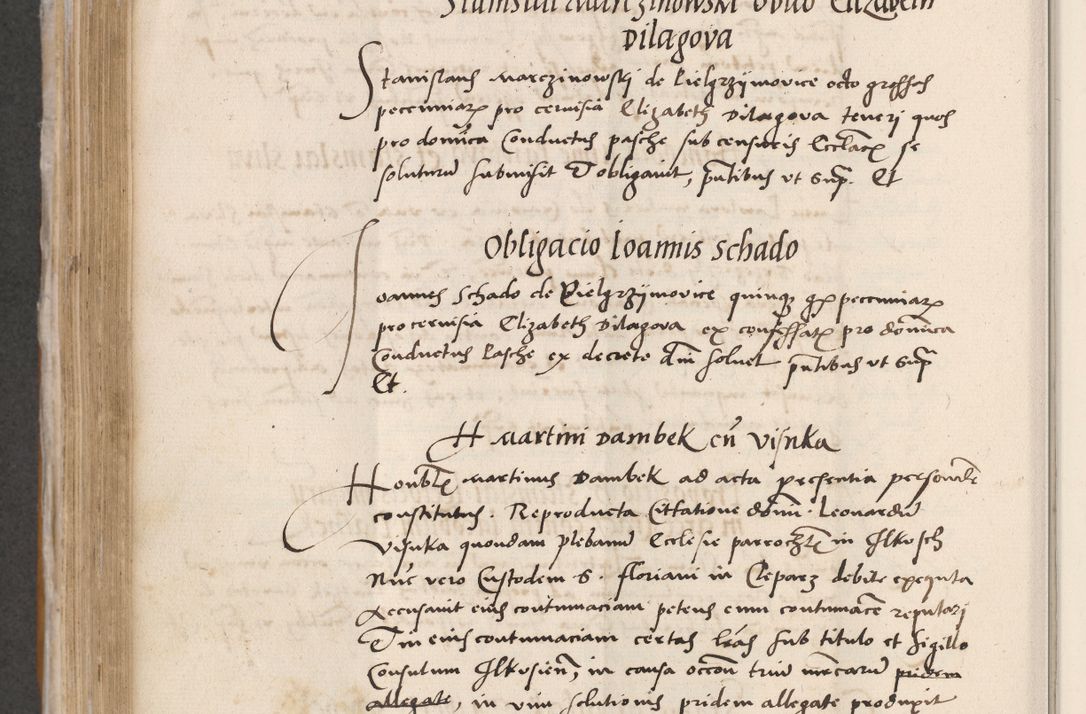 Stanislai Marczinowski obito Elizabeth
Dilagova
Stanislaus Marczinowskj de Pielgrzijmovice octo grossas
pecuniar pro cervisia Elizabeth Dilagova tenerj quos
pro domica Conductus pasche sub censuris Eccl se
soluturu submisit et obligavit, pntibus ut sup. Et
Obligacio Ioannis Schado
Ioannes Schado de Pielgrzijmovice quinq gr pecuniar
pro cervisia Elizabeth Dilagova ex confessat pro domica
Conductus Pasche ex decreto dni solvet pntibus ut sup
Et.
H Martini Dambek cu Visnka
Honbl Martinus Dambek ad acta presentia personalr
constitutus. Reproducta Cittatione domi. Leonardu
Visnka quondam plebanu Ecclesie parroch in Ilkusch
Nuc vero Custodem S. Floriani in Cleparz debite exequta
Accusavit eius contumaciam petens eum contumace reputarj
Et in eius contumaciam certas lras sub titulo et sigillo
Consulum Ilkusien, in causa occou triu mrcaru pridem
allegate, in vim solutionis pridem allegate produxit